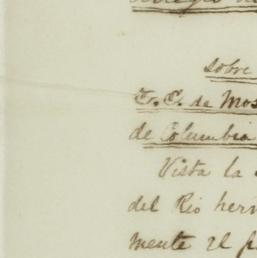 sobre
T. C. de Mos
de Columbia
Vista la
del Rio her
mente el